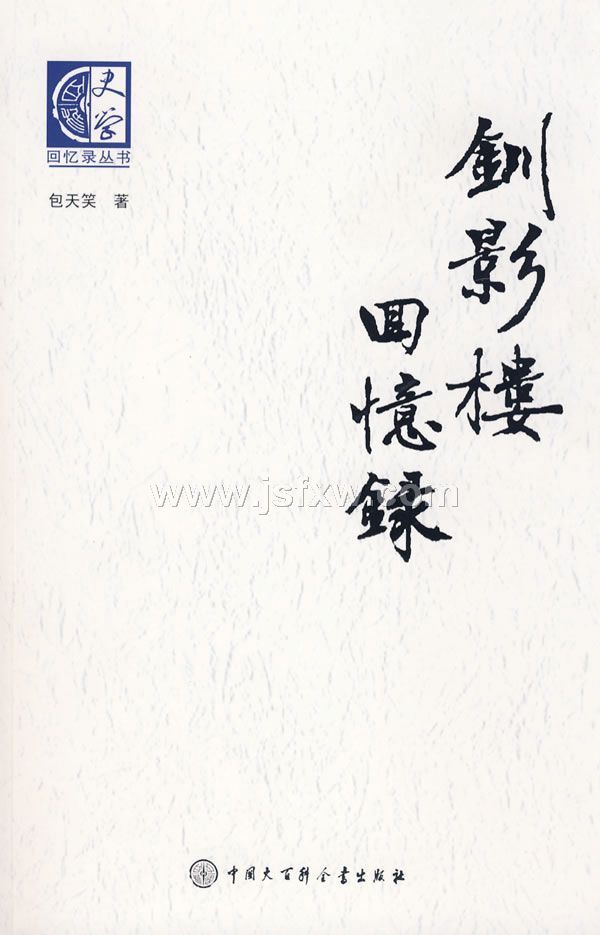 史学
回忆录丛书
包天笑 著
釧影樓
回憶録
www.jsfxw.com
中国大百科全书出版社